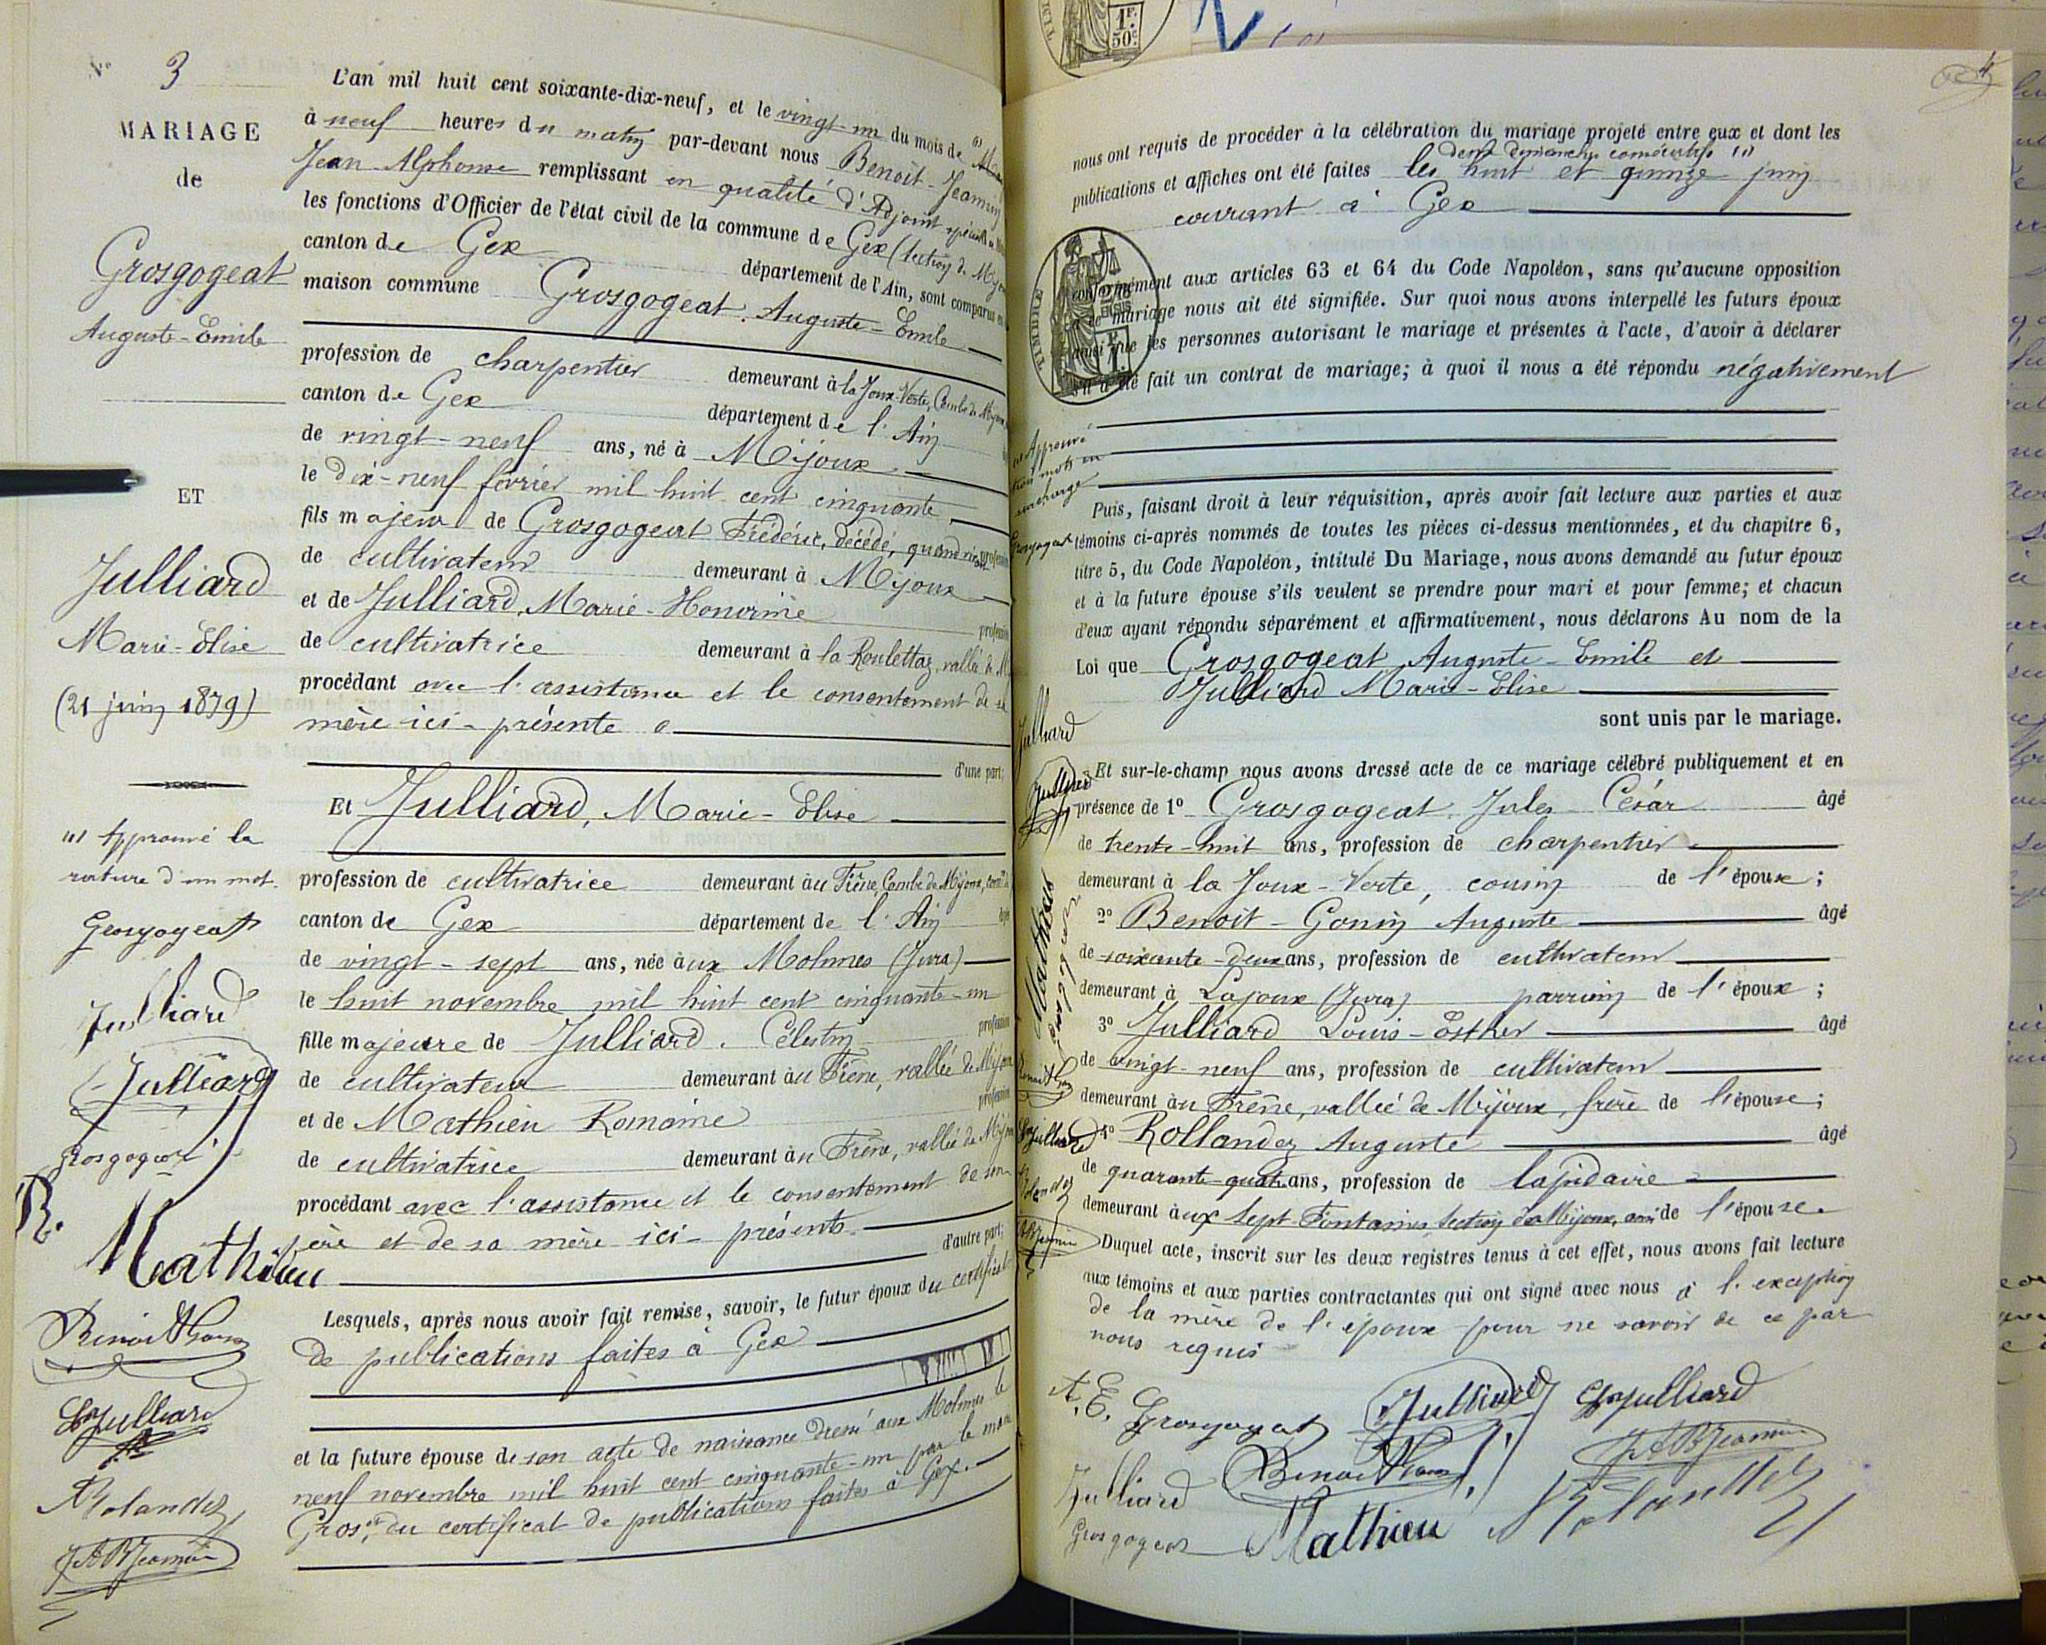 N° 3
MARIAGE
de
Grosgogeat
Auguste-Emile
ET
Julliard
Marie-Elise
(21 juin 1879)
(1) Approuvé la
rature d'un mot.
Grosgogeat
Julliard
Julliard
Grosgogeat
R. Mathieu
Benoit Gonin
Julliard
A Rolandez
JABJeannin
L'an mil huit cent soixante-dix-neuf, et le vingt-un du mois de
à neuf heures du matin par-devant nous Benoit-Jeannin
Jean Alphonse remplissant en qualité d'Adjoint spécial
les fonctions d'Officier de l'état civil de la commune de Gex (section de Mijoux
canton de Gex département de l'Ain, sont comparus en
maison commune Grosgogeat. Auguste-Emile
profession de charpentier demeurant à la Joux-Verte, Combe de Mijoux
canton de Gex département de l'Ain
de vingt-neuf ans, né à Mijoux.
le dix-neuf février mil huit cent cinquante
fils majeur de Grosgogeat Frédéric, décédé, quand vivait profession
de cultivateur demeurant à Mijoux
et de Julliard, Marie-Honorine profession
de cultivatrice demeurant à la Roulettaz, vallée de M
procédant avec l'assistance et le consentement de sa
mère ici-présente
d'une part;
Et Julliard, Marie-Elise
profession de cultivatrice demeurant au Frêne, Combe de Mijoux,
canton de Gex département de l'Ain âgée
de vingt-sept ans, née aux Molunes (Jura)
le huit novembre mil huit cent cinquante-un
fille majeure de Julliard. Célestin profession
de cultivateur demeurant au Frêne, vallée de Mijoux
et de Mathieu Romaine profession
de cultivatrice demeurant au Frêne, vallée de Mijoux
procédant avec l'assistance et le consentement de son
père et de sa mère ici-présents.
d'autre part;
Lesquels, après nous avoir fait remise, savoir, le futur époux du certificat
de publications faites à Gex
et la future épouse de son acte de naissance dressé aux Molunes le
neuf novembre mil huit cent cinquante-un par le maire
Gros; du certificat de publications faites à Gex.
1F. 50c.
4
nous ont requis de procéder à la célébration du mariage projeté entre eux et dont les
deux dimanches consécutifs (1)
publications et affiches ont été faites les huit et quinze juin
courant à Gex
TIMBRE
conformément aux articles 63 et 64 du Code Napoléon, sans qu'aucune opposition
à ce mariage nous ait été signifiée. Sur quoi nous avons interpellé les futurs époux
ainsi que les personnes autorisant le mariage et présentes à l'acte, d'avoir à déclarer
s'il a été fait un contrat de mariage; à quoi il nous a été répondu négativement
(1) Approuvé
trois mots en
surcharge
Grosgogeat
Puis, faisant droit à leur réquisition, après avoir fait lecture aux parties et aux
témoins ci-après nommés de toutes les pièces ci-dessus mentionnées, et du chapitre 6,
titre 5, du Code Napoléon, intitulé Du Mariage, nous avons demandé au futur époux
et à la future épouse s'ils veulent se prendre pour mari et pour femme; et chacun
d'eux ayant répondu séparément et affirmativement, nous déclarons Au nom de la
Loi que Grosgogeat Auguste-Emile et
Julliard Marie-Elise
sont unis par le mariage.
Julliard
Julliard
Mathieu
Grosgogeat
Benoit Gonin
Julliard
Rolandez
JABJeannin
Et sur-le-champ nous avons dressé acte de ce mariage célébré publiquement et en
présence de 1° Grosgogeat Jules César âgé
de trente-huit ans, profession de charpentier
demeurant à la Joux-Verte, cousin de l'époux;
2° Benoit-Gonin Auguste âgé
de soixante-deux ans, profession de cultivateur
demeurant à Lajoux (Jura) parrain de l'époux;
3° Julliard Louis-Esther âgé
de vingt-neuf ans, profession de cultivateur
demeurant au Frêne, vallée de Mijoux, frère de l'épouse;
4° Rollandez Auguste âgé
de quarante-quatre ans, profession de lapidaire
demeurant aux Sept-Fontaines, section de Mijoux, ami de l'épouse.
Duquel acte, inscrit sur les deux registres tenus à cet effet, nous avons fait lecture
aux témoins et aux parties contractantes qui ont signé avec nous à l'exception
de la mère de l'époux pour ne savoir de ce par
nous requis
A. E. Grosgogeat Julliard Julliard
Julliard Benoit Gonin JABJeannin
Grosgogeat Mathieu A Rolandez